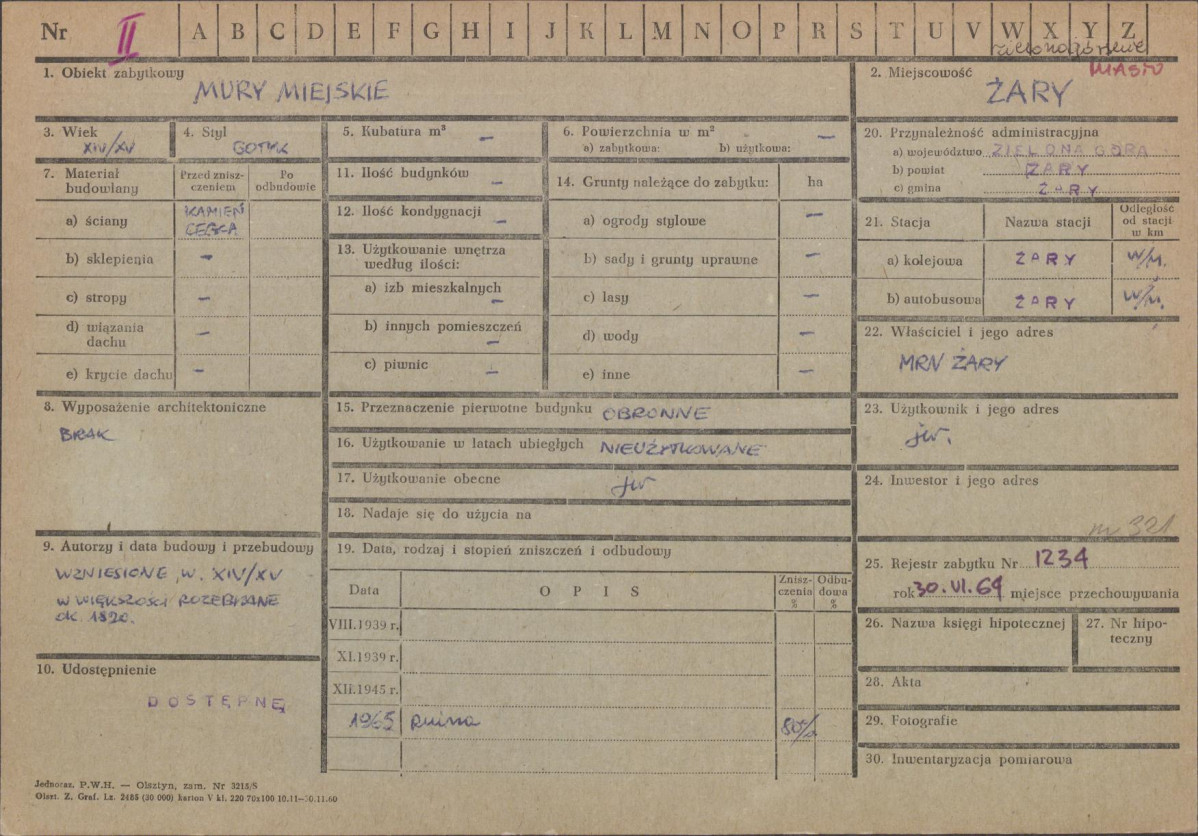 Nr II A B C D E F G H I J K L M N O P R S T U V W X Y Z
zielonogórskie
1. Obiekt zabytkowy
MURY MIEJSKIE
2. Miejscowość
MIASTO
ŻARY
3. Wiek
XIV/XV
4. Styl
GOTYK
5. Kubatura m³ —
6. Powierzchnia w m² —
a) zabytkowa: b) użytkowa:
7. Materiał budowlany
Przed zniszczeniem
Po odbudowie
a) ściany
KAMIEŃ
CEGŁA
b) sklepienia —
c) stropy —
d) wiązania dachu —
e) krycie dachu —
8. Wyposażenie architektoniczne
BRAK
9. Autorzy i data budowy i przebudowy
WZNIESIONE W. XIV/XV
W WIĘKSZOŚCI ROZEBRANE
ok. 1820.
10. Udostępnienie
DOSTĘPNE
11. Ilość budynków —
12. Ilość kondygnacji —
13. Użytkowanie wnętrza
według ilości:
a) izb mieszkalnych —
b) innych pomieszczeń —
c) piwnic —
14. Grunty należące do zabytku: ha
a) ogrody stylowe —
b) sady i grunty uprawne —
c) lasy —
d) wody —
e) inne —
15. Przeznaczenie pierwotne budynku OBRONNE
16. Użytkowanie w latach ubiegłych NIEUŻYTKOWANE
17. Użytkowanie obecne jw
18. Nadaje się do użycia na
19. Data, rodzaj i stopień zniszczeń i odbudowy
Data
OPIS
Zniszczenia %
Odbudowa %
VIII.1939 r.
XI.1939 r.
XII.1945 r.
1965 ruina 80%
20. Przynależność administracyjna
a) województwo ZIELONA GÓRA
b) powiat ŻARY
c) gmina ŻARY
21. Stacja
Nazwa stacji
Odległość
od stacji
w km
a) kolejowa ŻARY W/M.
b) autobusowa ŻARY W/M.
22. Właściciel i jego adres
MRN ŻARY
23. Użytkownik i jego adres
jw.
24. Inwestor i jego adres
321
25. Rejestr zabytku Nr 1234
rok 30.VI.69 miejsce przechowywania
26. Nazwa księgi hipotecznej
27. Nr hipoteczny
28. Akta
29. Fotografie
30. Inwentaryzacja pomiarowa
Jednoraz. P.W.H. — Olsztyn, zam. Nr 3215/S
Olszt. Z. Graf. Lz. 2485 (30 000) karton V kl. 220 70x100 10.11—30.11.60